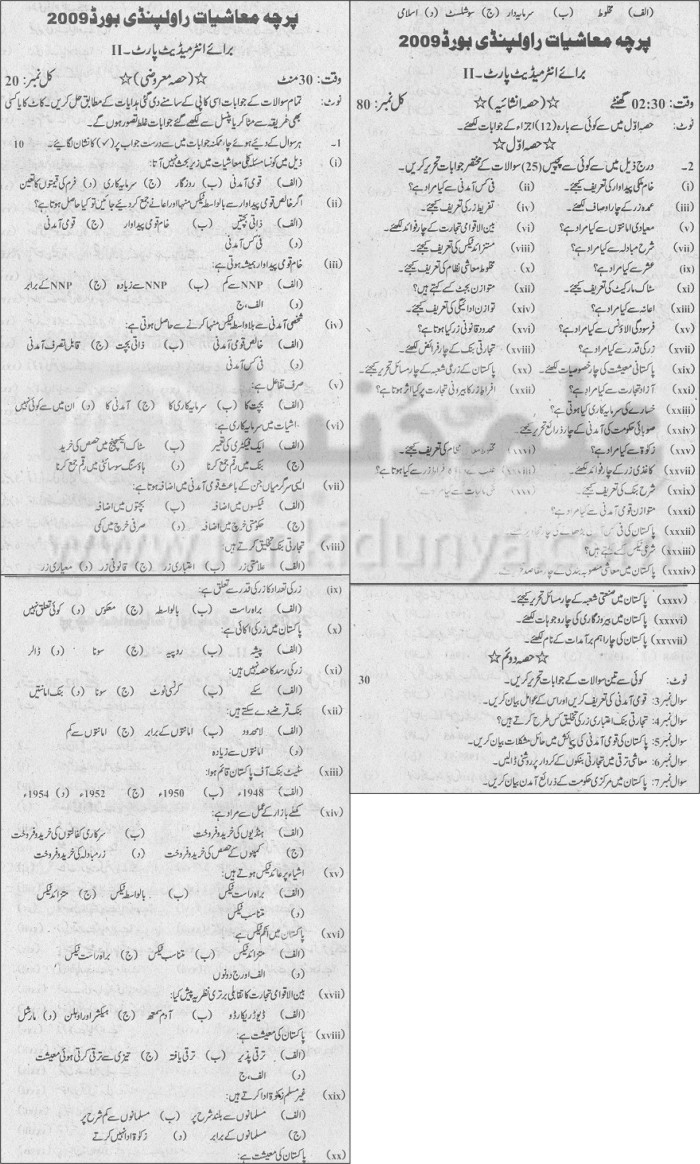 پرچہ معاشیات راولپنڈی بورڈ 2009
برائے انٹرمیڈیٹ پارٹ-II
وقت: 30 منٹ ☆(حصہ معروضی)☆ کل نمبر: 20
نوٹ: تمام سوالات کے جوابات اسی کاپی کے سامنے دی گئی ہدایات کے مطابق حل کریں۔ کاٹ کر یا کسی
بھی طریقہ سے مٹا کر یا پنسل سے لکھے گئے جوابات غلط تصور ہوں گے۔
1- ہر سوال کے دیئے ہوئے چار ممکنہ جوابات میں سے درست جواب پر (✓) کا نشان لگائیے۔ 10
(i) ذیل میں کونسا مسئلہ کلی معاشیات میں زیر بحث نہیں آتا:
(الف) قومی آمدنی (ب) روزگار (ج) سرمایہ کاری (د) فرم کی قیمتوں کا تعین
(ii) اگر خالص قومی پیداوار سے بالواسطہ ٹیکس منہا اور اعانے جمع کر دیئے جائیں تو کیا حاصل ہوتا ہے؟
(الف) ذاتی بچتیں (ب) خام قومی پیداوار (ج) قومی آمدنی
(د) فی کس آمدنی
(iii) خام قومی پیداوار ہمیشہ ہوتی ہے:
(الف) NNP سے کم (ب) NNP سے زیادہ (ج) NNP کے برابر
(د) الف، ج
(iv) شخصی آمدنی سے بلاواسطہ ٹیکس منہا کرنے سے حاصل ہوتی ہے:
(الف) خالص قومی آمدنی (ب) ذاتی بچت (ج) قابل تصرف آمدنی
(د) فی کس آمدنی
(v) صرف تفاعل ہے:
(الف) بچت کا (ب) سرمایہ کاری کا (ج) آمدنی کا (د) ان میں سے کوئی نہیں
(vi) معاشیات میں سرمایہ کاری ہے:
(الف) ایک فیکٹری کی تعمیر (ب) سٹاک ایکسچینج میں حصص کی خرید
(ج) بنک میں رقم جمع کرنا (د) ہاؤسنگ سوسائٹی میں رقم جمع کرنا
(vii) ایسی سرگرمیاں جن کے باعث قومی آمدنی میں اضافہ ہوتا ہے:
(الف) ٹیکسوں میں اضافہ (ب) بچتوں میں اضافہ
(ج) حکومتی خرچ میں اضافہ (د) صرفی خرچ میں کمی
(viii) تجارتی بنک تخلیق کرتے ہیں:
(الف) علامتی زر (ب) اعتباری زر (ج) قانونی زر (د) معیاری زر
(ix) زر کی تعداد کا زر کی قدر سے تعلق ہے:
(الف) براہ راست (ب) بالواسطہ (ج) معکوس (د) کوئی تعلق نہیں
(x) پاکستان میں زر کی اکائی ہے:
(الف) پیسہ (ب) روپیہ (ج) سونا (د) ڈالر
(xi) زر کی رسد کا حصہ نہیں ہیں:
(الف) سکے (ب) کرنسی نوٹ (ج) سونا (د) بنک امانتیں
(xii) بنک قرضے دے سکتے ہیں:
(الف) لامحدود (ب) امانتوں کے برابر (ج) امانتوں سے کم
(د) امانتوں سے زیادہ
(xiii) سٹیٹ بنک آف پاکستان قائم ہوا:
(الف) 1948ء (ب) 1950ء (ج) 1952ء (د) 1954ء
(xiv) کھلے بازار کے عمل سے مراد ہے:
(الف) ہنڈیوں کی خرید و فروخت (ب) سرکاری کفالتوں کی خرید و فروخت
(ج) کمپنیوں کے حصص کی خرید و فروخت (د) زرمبادلہ کی خرید و فروخت
(xv) اشیاء پر عائد ٹیکس ہوتے ہیں:
(الف) براہ راست ٹیکس (ب) بالواسطہ ٹیکس (ج) متزائد ٹیکس
(د) متناسب ٹیکس
(xvi) پاکستان میں انکم ٹیکس ہے:
(الف) متزائد ٹیکس (ب) متناسب ٹیکس (ج) براہ راست ٹیکس
(د) الف اور ج دونوں
(xvii) بین الاقوامی تجارت کا تقابلی برتری نظریہ پیش کیا:
(الف) ڈیوڈ ریکارڈو (ب) آدم سمتھ (ج) ہیکشر اور اوہلن (د) مارشل
(xviii) پاکستان کی معیشت ہے:
(الف) ترقی پذیر (ب) ترقی یافتہ (ج) تیزی سے ترقی کرتی ہوئی معیشت
(د) الف، ج
(xix) غیر مسلم زکوٰۃ ادا کرتے ہیں:
(الف) مسلمانوں سے بلند شرح پر (ب) مسلمانوں سے کم شرح پر
(ج) مسلمانوں کے برابر (د) زکوٰۃ ادا نہیں کرتے
(xx) پاکستان کی معیشت ہے:
(الف) مخلوط (ب) سرمایہ دار (ج) سوشلسٹ (د) اسلامی
پرچہ معاشیات راولپنڈی بورڈ 2009
برائے انٹرمیڈیٹ پارٹ-II
وقت: 02:30 گھنٹے ☆(حصہ انشائیہ)☆ کل نمبر: 80
نوٹ: حصہ اوّل میں سے کوئی سے بارہ (12) اجزاء کے جوابات لکھئے۔
☆حصہ اوّل☆
2- درج ذیل میں سے کوئی سے پچیس (25) سوالات کے مختصر جوابات تحریر کریں۔
(i) خام ملکی پیداوار کی تعریف کیجئے۔ (ii) فی کس آمدنی سے کیا مراد ہے؟
(iii) عمدہ زر کے چار اوصاف لکھئے۔ (iv) تفریط زر کی تعریف کیجئے۔
(v) معیادی امانتوں سے کیا مراد ہے؟ (vi) بین الاقوامی تجارت کے چار فوائد لکھئے۔
(vii) شرح مبادلہ سے کیا مراد ہے؟ (viii) متزائد ٹیکس کی تعریف کیجئے۔
(ix) عشر سے کیا مراد ہے؟ (x) مخلوط معاشی نظام کی تعریف کیجئے۔
(xi) سٹاک مارکیٹ کی تعریف کیجئے۔ (xii) متوازن بجٹ کسے کہتے ہیں؟
(xiii) اعانہ سے کیا مراد ہے؟ (xiv) توازن ادائیگی کی تعریف کیجئے۔
(xv) فرسودگی الاؤنس سے کیا مراد ہے؟ (xvi) محدود قانونی زر کیا ہوتا ہے؟
(xvii) زر کی قدر سے کیا مراد ہے؟ (xviii) تجارتی بنک کے چار فرائض لکھئے۔
(xix) پاکستانی معیشت کی چار خصوصیات لکھئے۔ (xx) پاکستان کے زرعی شعبہ کے چار مسائل تحریر کیجئے۔
(xxi) آزاد تجارت سے کیا مراد ہے؟ (xxii) افراط زر کا بیرونی تجارت پر کیا اثر ہوتا ہے؟
(xxiii) خسارے کی سرمایہ کاری کیا ہوتی ہے؟
(xxiv) صوبائی حکومت کی آمدنی کے چار ذرائع تحریر کیجئے۔
(xxv) زکوٰۃ سے کیا مراد ہے؟ (xxvi) مخلوط معاشی نظام کی تعریف کیجئے۔
(xxvii) کاغذی زر کے چار فوائد لکھئے۔ (xxviii) افراط زر سے کیا ہوتا ہے؟
(xxix) شرح بنک کی تعریف کیجئے۔ سے کیا مراد ہے؟
(xxxi) متوازن قومی آمدنی
(xxxii) پاکستان کی فی کس آمدنی بڑھانے کی چار
(xxxiii) شرعی ٹیکس کسے کہتے ہیں؟
(xxxiv) پاکستان میں معاشی منصوبہ بندی کے چار مقاصد
(xxxv) پاکستان میں صنعتی شعبہ کے چار مسائل تحریر کیجئے۔
(xxxvi) پاکستان میں بیروزگاری کی چار وجوہات لکھئے۔
(xxxvii) پاکستان کی چار اہم برآمدات کے نام لکھئے۔
☆حصہ دوئم☆
نوٹ: کوئی سے تین سوالات کے جوابات تحریر کریں۔ 30
سوال نمبر 3: قومی آمدنی کی تعریف کریں اور اس کے عوامل بیان کریں۔
سوال نمبر 4: تجارتی بنک اعتباری زر کی تخلیق کس طرح کرتے ہیں؟
سوال نمبر 5: پاکستان کی قومی آمدنی کی پیمائش میں حائل مشکلات بیان کریں۔
سوال نمبر 6: معاشی ترقی میں تجارتی بنکوں کے کردار پر روشنی ڈالیں۔
سوال نمبر 7: پاکستان میں مرکزی حکومت کے ذرائع آمدن بیان کریں۔